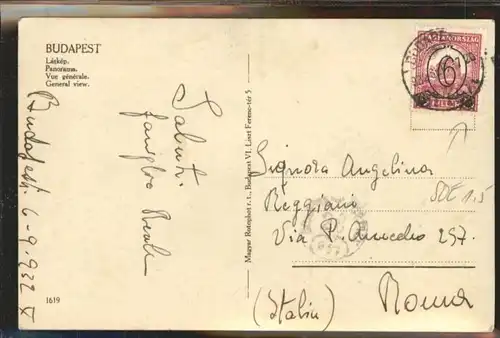 BUDAPEST
Látkép.
Panorama.
Vue générale.
General view.
Budapest. 6-9-932 X
Saluti
famiglia
Magyar Rotophot r. t., Budapest VI, Liszt Ferenc-tér 5
6
Signora Angelina
Reggiani
Via P. Amedeo 257.
(Italia)
Roma
SDE 1.5
1619